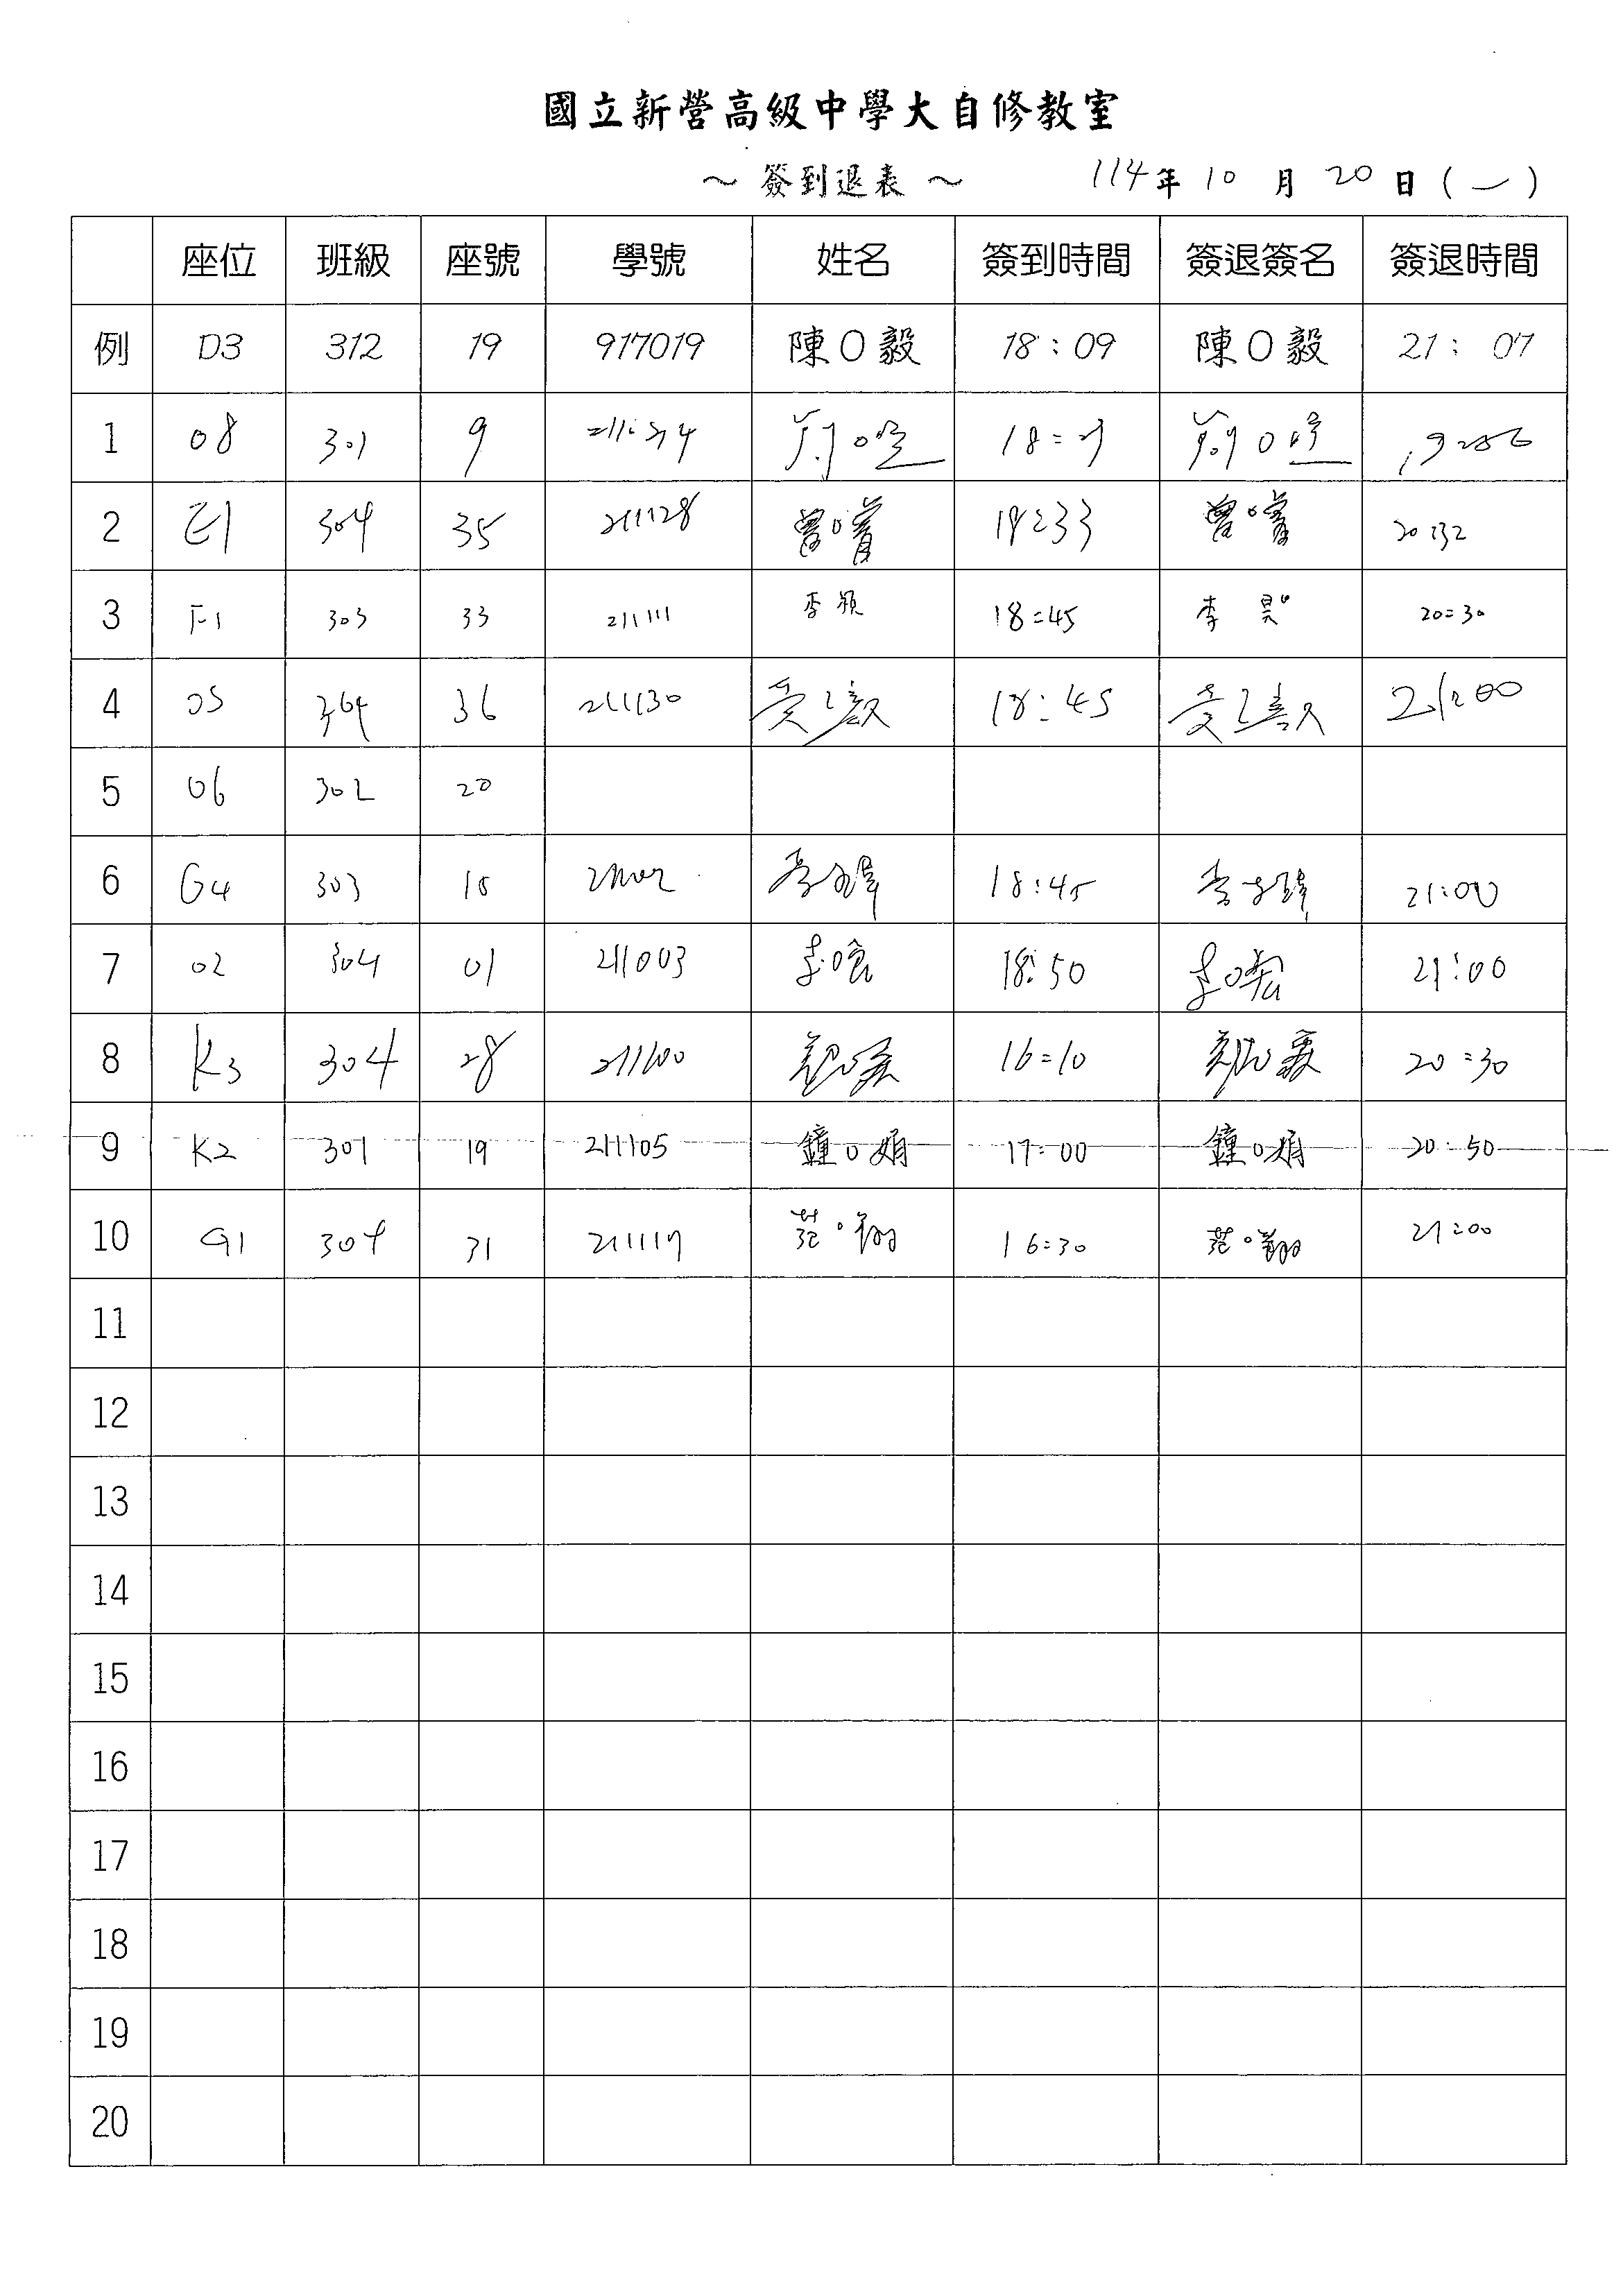 國立新營高級中學大自修教室
～ 簽到退表 ～ 114年 10 月 20 日 (一)
座位 班級 座號 學號 姓名 簽到時間 簽退簽名 簽退時間
例 D3 312 19 917019 陳O毅 18:09 陳O毅 21:07
1 08 301 9
2 E1 304 35 211128 曾O 20:32
3 F1 303 33 211111 李 18:45 李 昊 20:30
4 05 304 36 211130 18:45 21:00
5 06 302 20
6 G4 303 李 18:45 李 21:00
7 02 304 01 211003 李O 18:50 李O宏 21:00
8 K3 304 28 211100 16:10 20:30
9 K2 301 19 211105 鐘O娟 17:00 鐘O娟 20:50
10 G1 304 31 211117 范O翔 16:30 范O翔 21:00
11
12
13
14
15
16
17
18
19
20